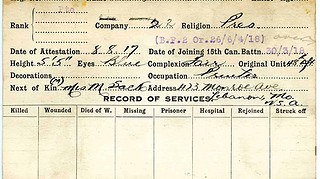 Rank Pte. Company No 2 Religion Pres.
(B.P.2 Or.26/6/4/18)
Date of Attestation 8.8.17 Date of Joining 15th Can. Battn. 30/3/18
Height 5'5" Eyes Blue Complexion Fair Original Unit 48
Decorations Occupation Printer
Next of Kin (M) Mrs M. Sack Address 1123 Monroe Ave
Lebanon, Mo.
U.S.A
RECORD OF SERVICES
Killed Wounded Died of W. Missing Prisoner Hospital Rejoined Struck off